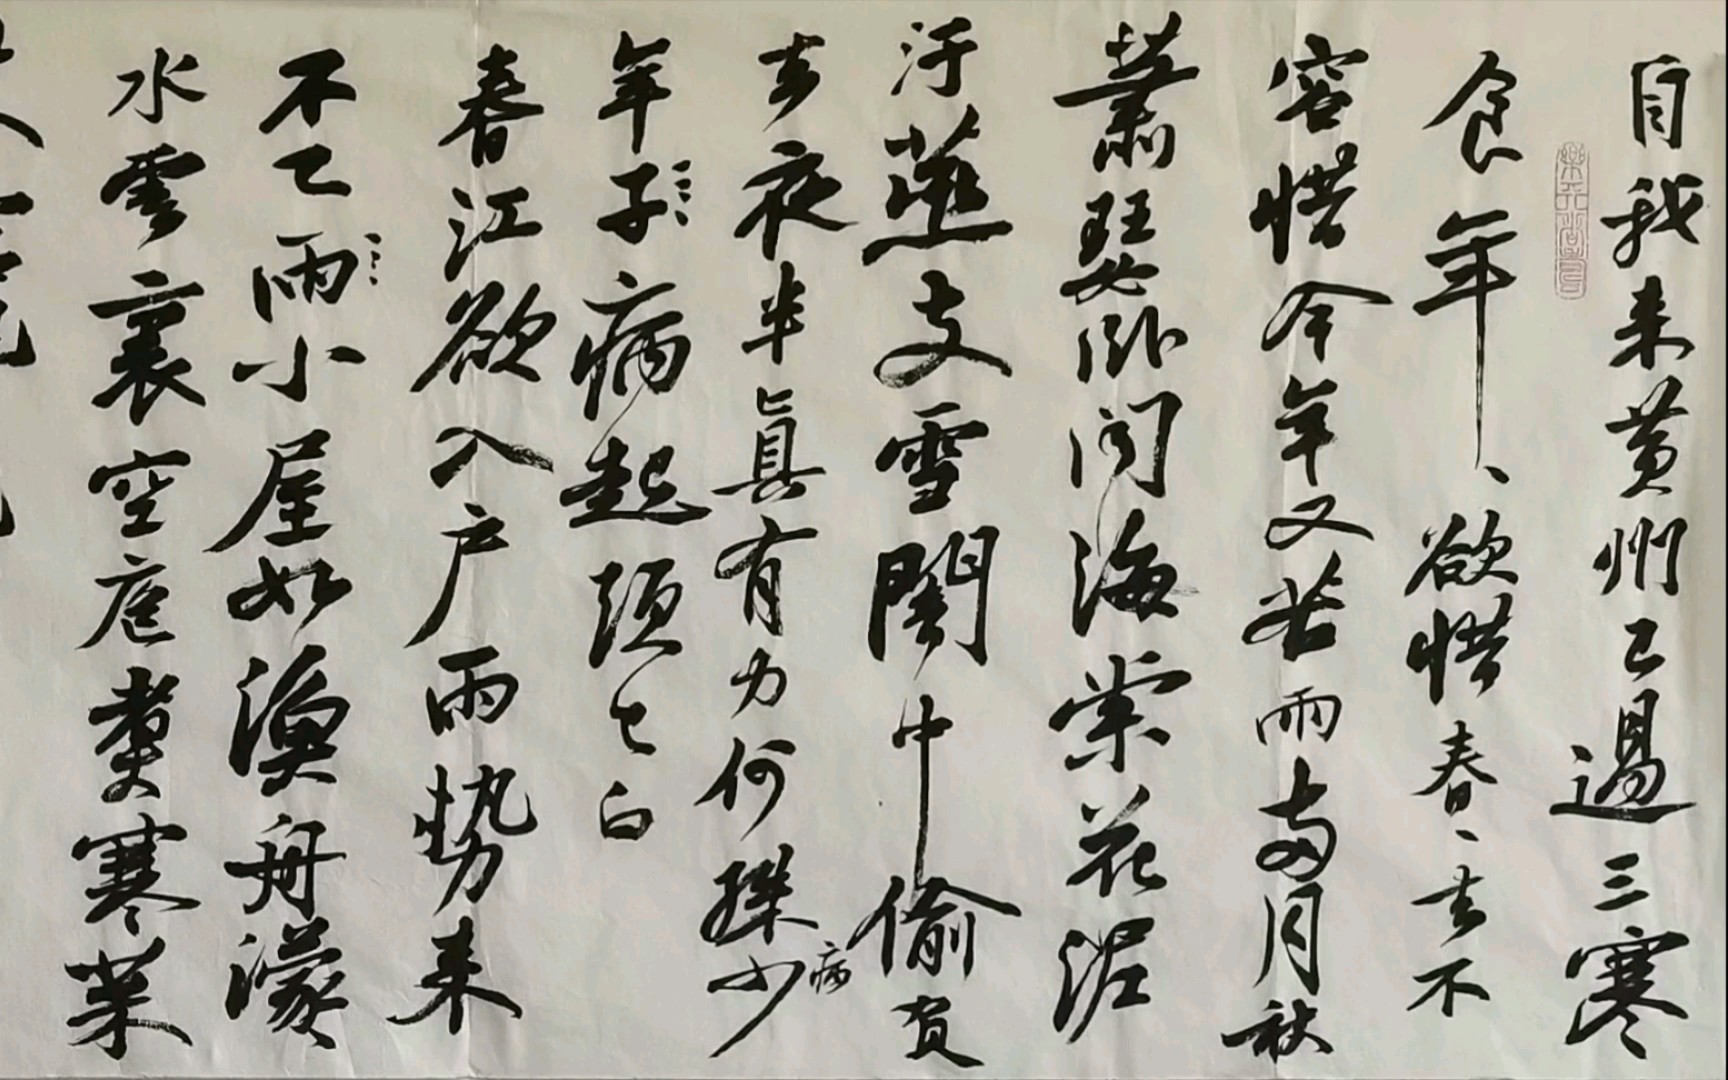 自我来黄州已過三寒
食年、欲惜春、去不
容惜今年又苦雨两月秋
蕭瑟卧闻海棠花泥
汙燕支雪闇中偷負
去夜半真有力何殊少
病
年子病起頭已白
春江欲入户雨势来
不已雨小屋如漁舟濛
水雲裏空庖煮寒菜